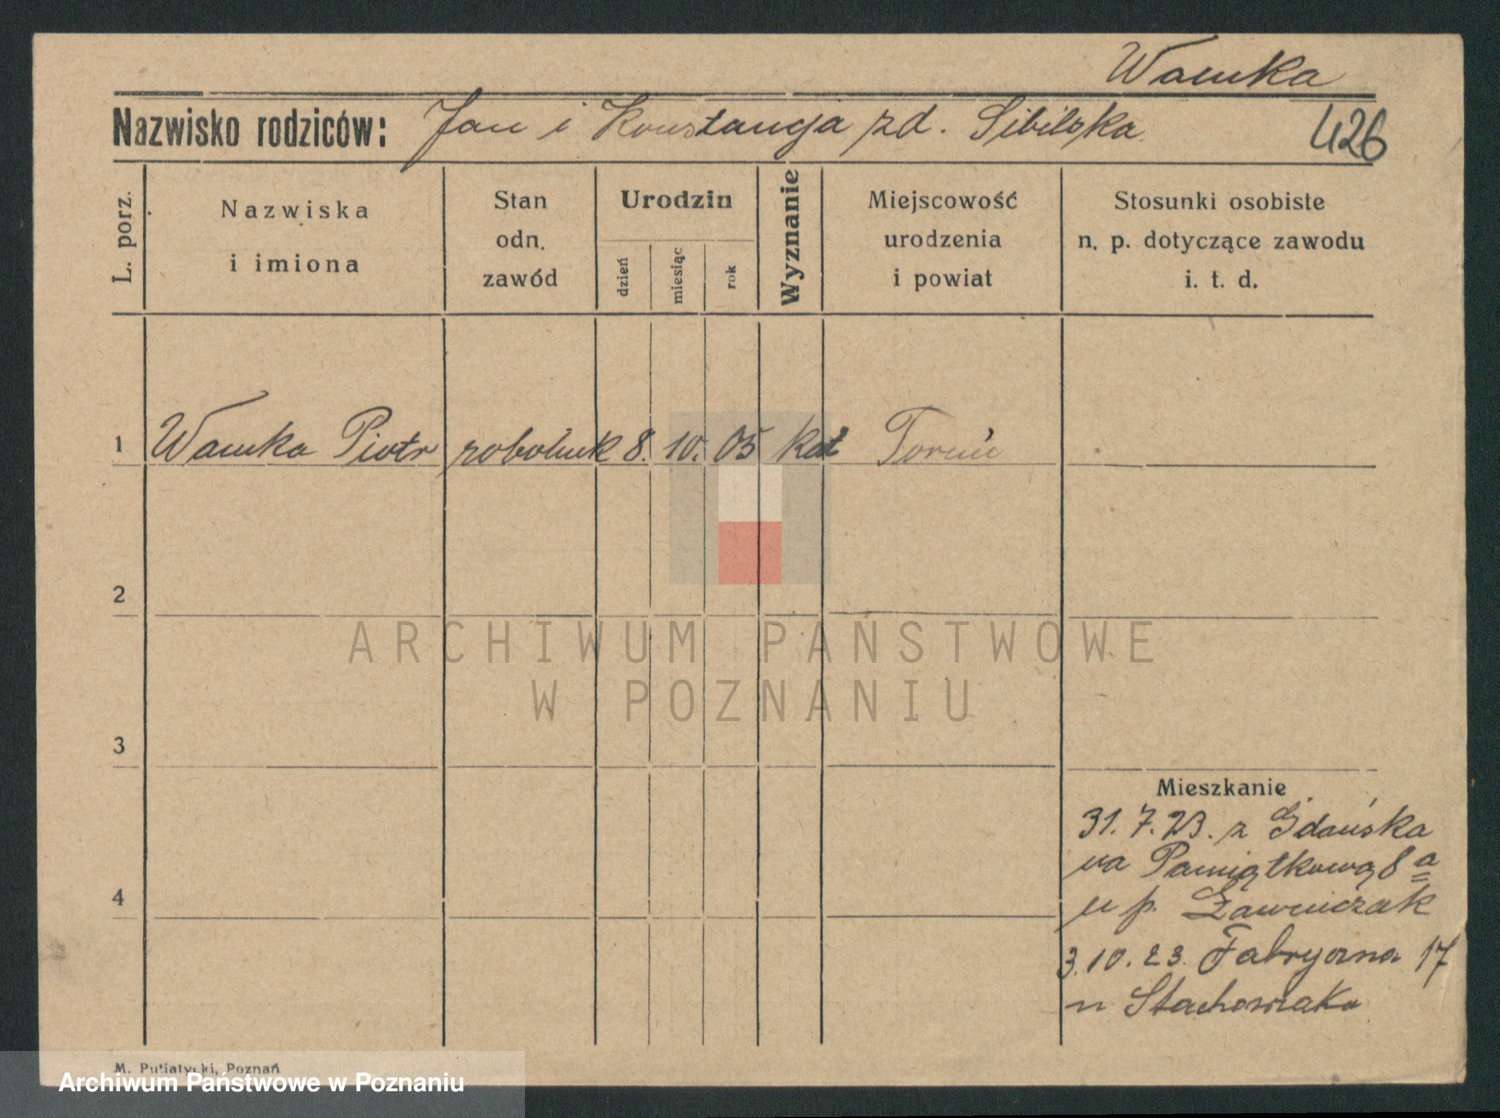 Wamka
Nazwisko rodziców: Jan i Konstancja zd. Sibilska
426
L. porz.
Nazwiska
i imiona
Stan
odn.
zawód
Urodzin
dzień
miesiąc
rok
Wyznanie
Miejscowość
urodzenia
i powiat
Stosunki osobiste
n. p. dotyczące zawodu
i. t. d.
1 Wamka Piotr robotnik 8. 10. 05 kat Toruń
2
ARCHIWUM PAŃSTWOWE
W POZNANIU
3
Mieszkanie
31. 7. 23. z Gdańska
na Pamiątkową 8 a
u p. Ławniczak
4
3. 10. 23. Fabryczna 17
u Stachowiaka
M. Putiatycki, Poznań
Archiwum Państwowe w Poznaniu